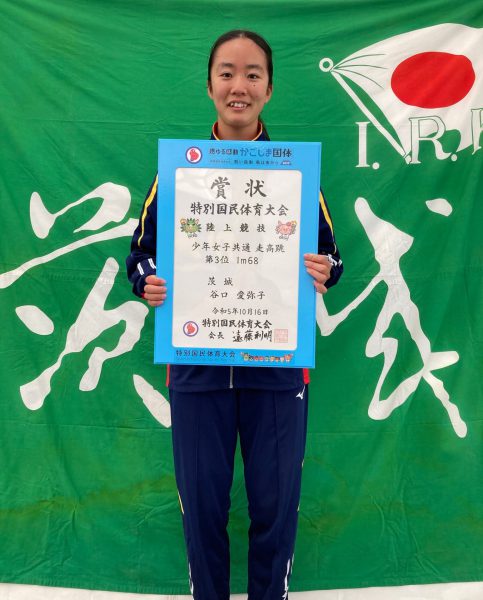 I.R.K
茨城
燃ゆる感動 かごしま国体
熱い鼓動 風は南から
賞状
特別国民体育大会
陸上競技
少年女子共通 走高跳
第3位 1m68
茨城
谷口 愛弥子
令和5年10月16日
特別国民体育大会
会長 遠藤利明
特別国民体育大会